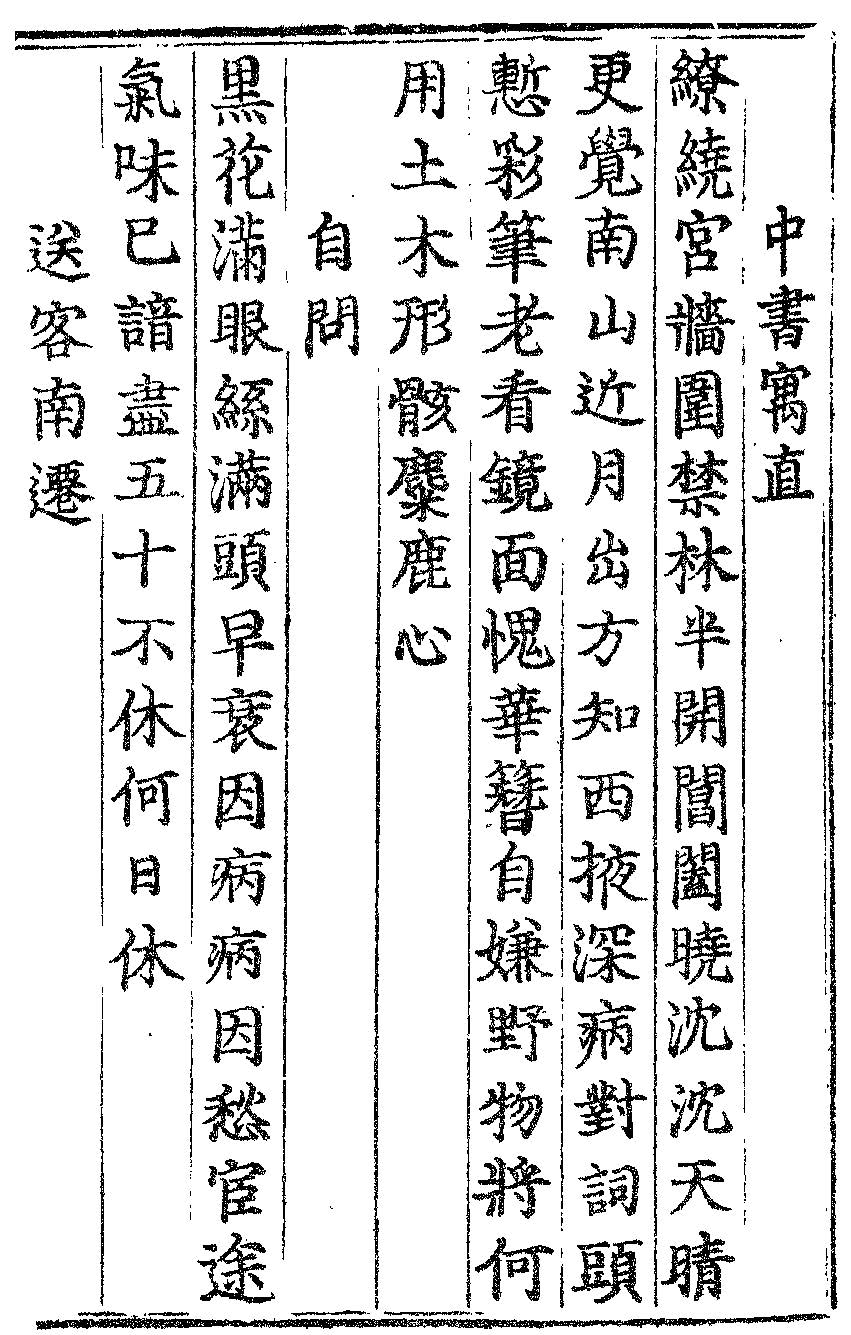 中書寓直
繚繞宮牆圍禁林半開閶闔曉沈沈天晴
更覺南山近月出方知西掖深病對詞頭
慙彩筆老看鏡面愧華簪自嫌野物將何
用土木形骸麋鹿心
自問
黑花滿眼絲滿頭早衰因病病因愁宦途
氣味已諳盡五十不休何日休
送客南遷